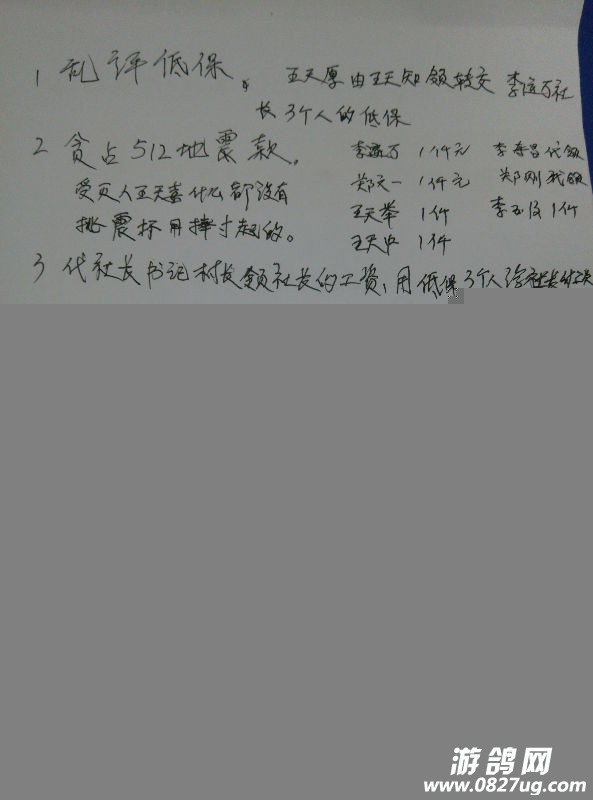 1 乱评低保。 王天厚由王天知领转交 李运万社
长 3个人的低保
2 贪占512地震款。 李运万 1仟元 李 昌代领
受灾人王天喜什么都没有 郑天一 1仟元 郑刚我领
震坏用 起的。 王天举 1仟 李玉 1仟
王天中 1仟
3 代社长书记村长领社长的工资,用低保3个人 社长
游鸽网
www.0827ug.com